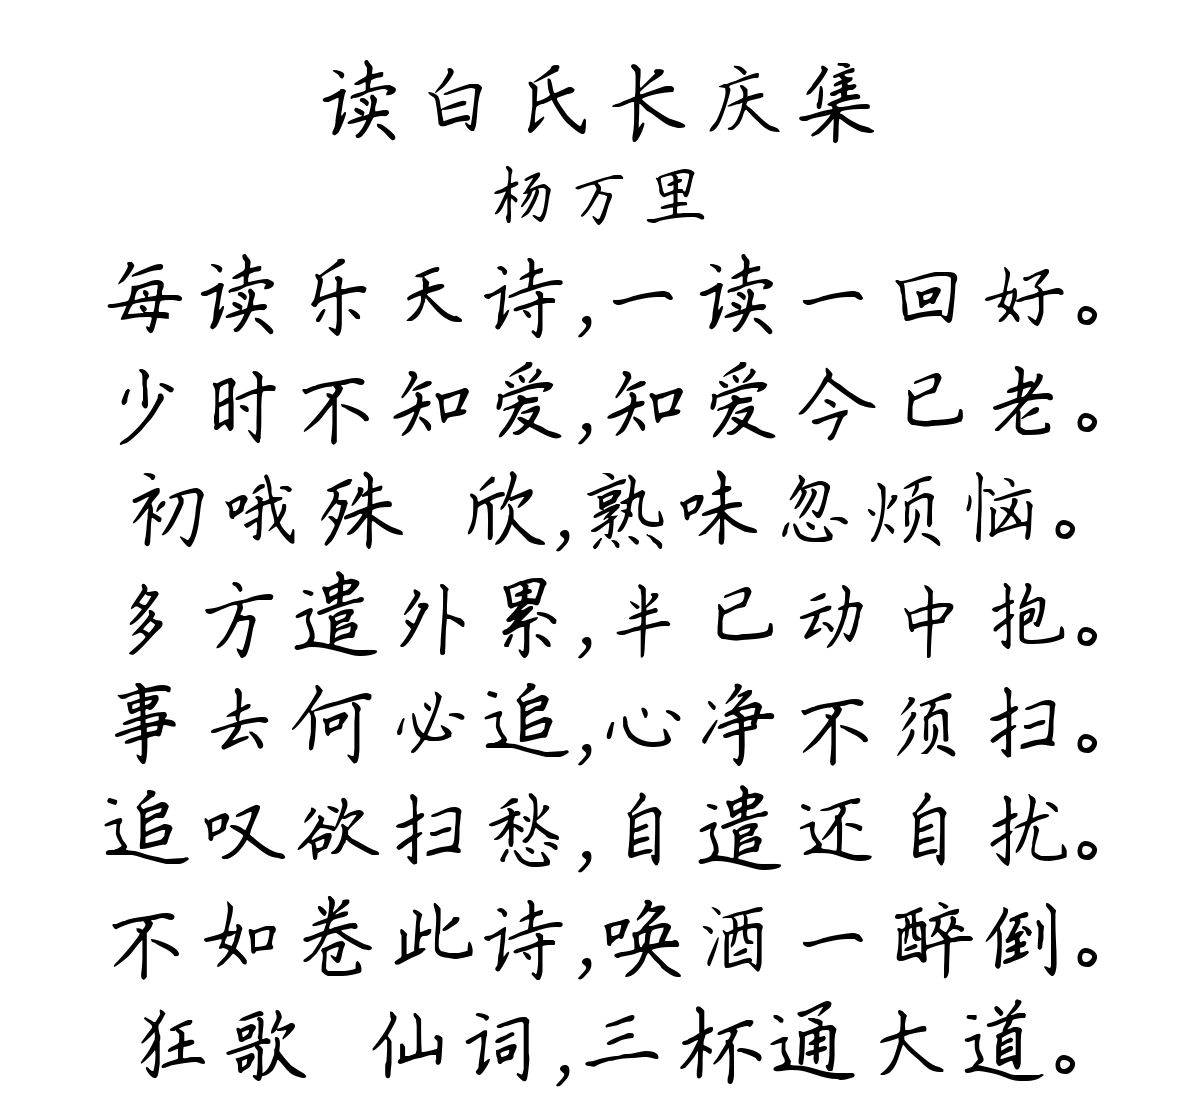 读白氏长庆集
杨万里
每读乐天诗,一读一回好。
少时不知爱,知爱今已老。
初哦殊 欣,熟味忽烦恼。
多方遣外累,半已动中抱。
事去何必追,心净不须扫。
追叹欲扫愁,自遣还自扰。
不如卷此诗,唤酒一醉倒。
狂歌 仙词,三杯通大道。